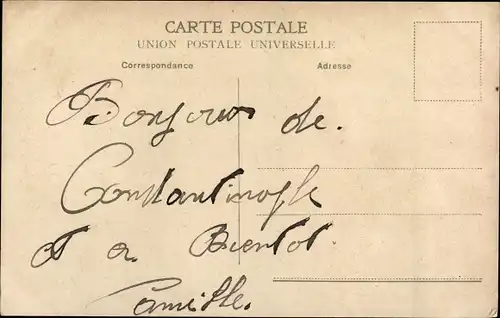 CARTE POSTALE
UNION POSTALE UNIVERSELLE
Correspondance Adresse
Bonjour de.
Constantinople
Et a Bientot.
Camille.